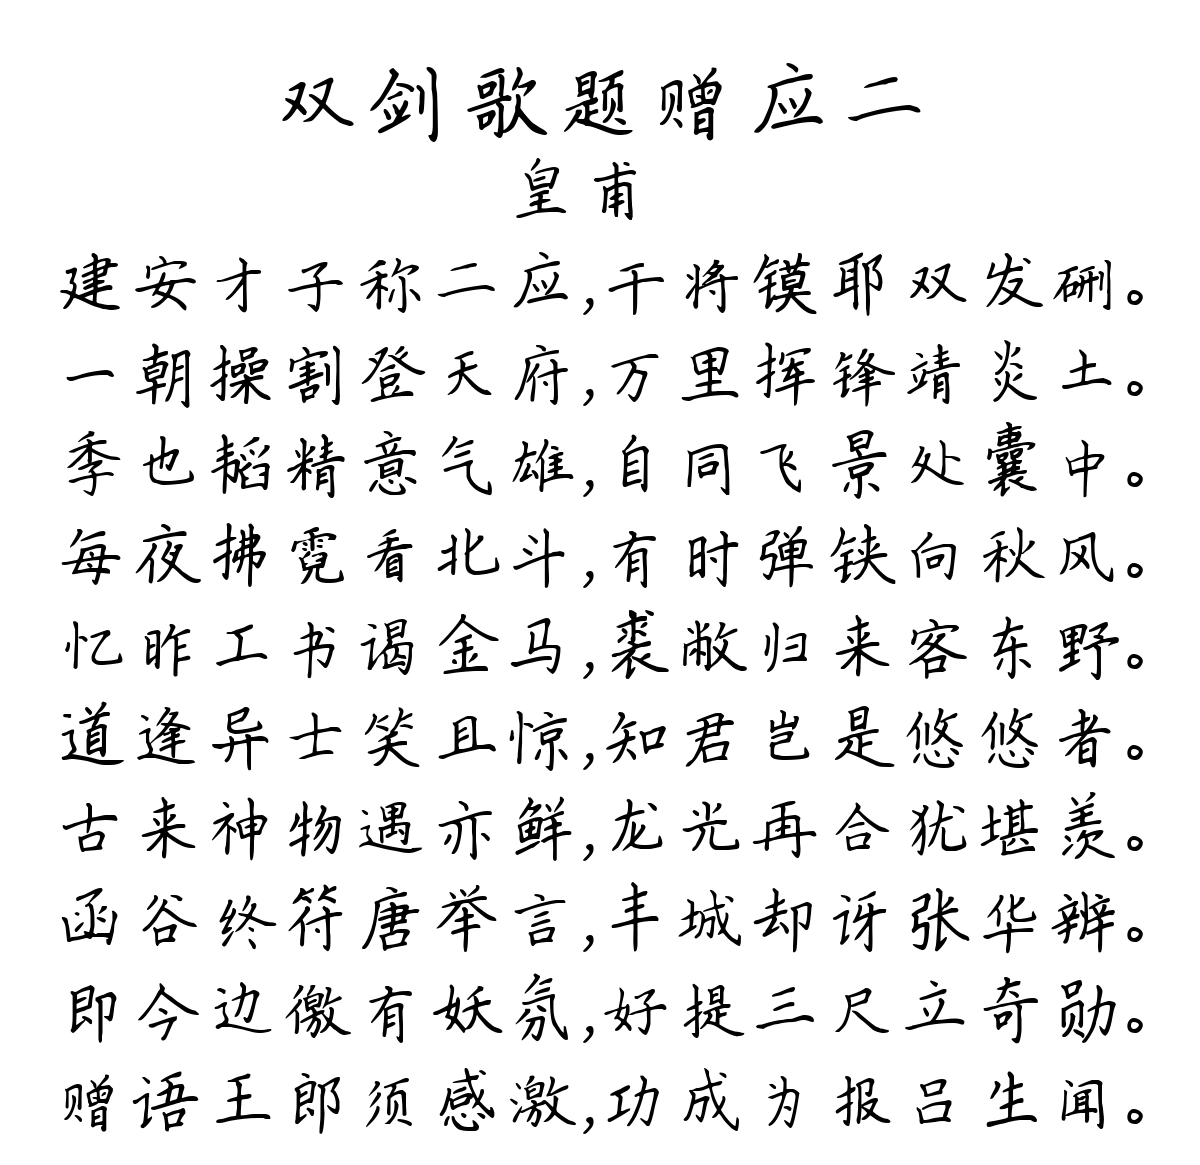 双剑歌题赠应二
皇甫
建安才子称二应,干将镆耶双发硎。
一朝操割登天府,万里挥锋靖炎土。
季也韬精意气雄,自同飞景处囊中。
每夜拂霓看北斗,有时弹铗向秋风。
忆昨工书谒金马,裘敝归来客东野。
道逢异士笑且惊,知君岂是悠悠者。
古来神物遇亦鲜,龙光再合犹堪羡。
函谷终符唐举言,丰城却讶张华辨。
即今边徼有妖氛,好提三尺立奇勋。
赠语王郎须感激,功成为报吕生闻。